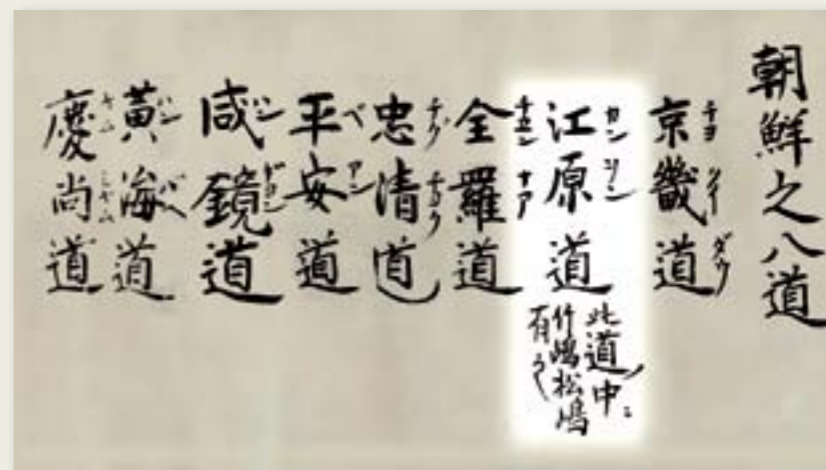 朝鮮之八道
京畿道
江原道
此道ノ中ニ
竹嶋松嶋
有之
全羅道
忠清道
平安道
咸鏡道
黄海道
慶尚道